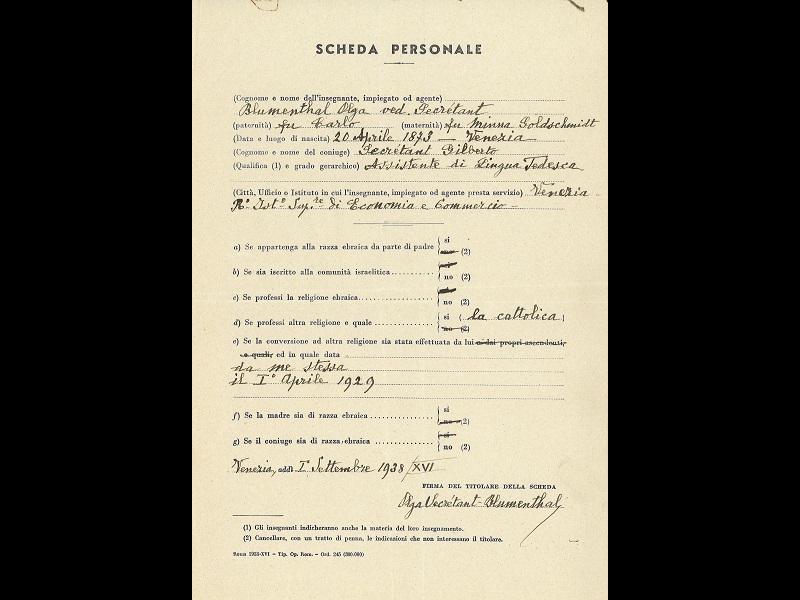 SCHEDA PERSONALE
(Cognome e nome dell'insegnante, impiegato od agente)
Blumenthal Olga ved. Secrétant
(paternità) fu Carlo (maternità) fu Minna Goldschmidt
(Data e luogo di nascita) 20 Aprile 1873 — Venezia —
(Cognome e nome del coniuge) Secrétant Gilberto
(Qualifica (1) e grado gerarchico) Assistente di Lingua Tedesca
(Città, Ufficio o Istituto in cui l'insegnante, impiegato od agente presta servizio) Venezia
R.º Ist.º Sup.re di Economia e Commercio —
a) Se appartenga alla razza ebraica da parte di padre { si
no (2)
b) Se sia iscritto alla comunità israelitica { si
no (2)
c) Se professi la religione ebraica { si
no (2)
d) Se professi altra religione e quale { si ( la cattolica )
no (2)
e) Se la conversione ad altra religione sia stata effettuata da lui o dai propri ascendenti,
e quali, ed in quale data
da me stessa
il Iº Aprile 1929
f) Se la madre sia di razza ebraica { si
no (2)
g) Se il coniuge sia di razza ebraica { si
no (2)
Venezia, addì Iº Settembre 1938 / XVI
FIRMA DEL TITOLARE DELLA SCHEDA
Olga Secrétant-Blumenthal
(1) Gli insegnanti indicheranno anche la materia del loro insegnamento.
(2) Cancellare, con un tratto di penna, le indicazioni che non interessano il titolare.
Roma 1938-XVI – Tip. Op. Rom. – Ord. 245 (300.000)